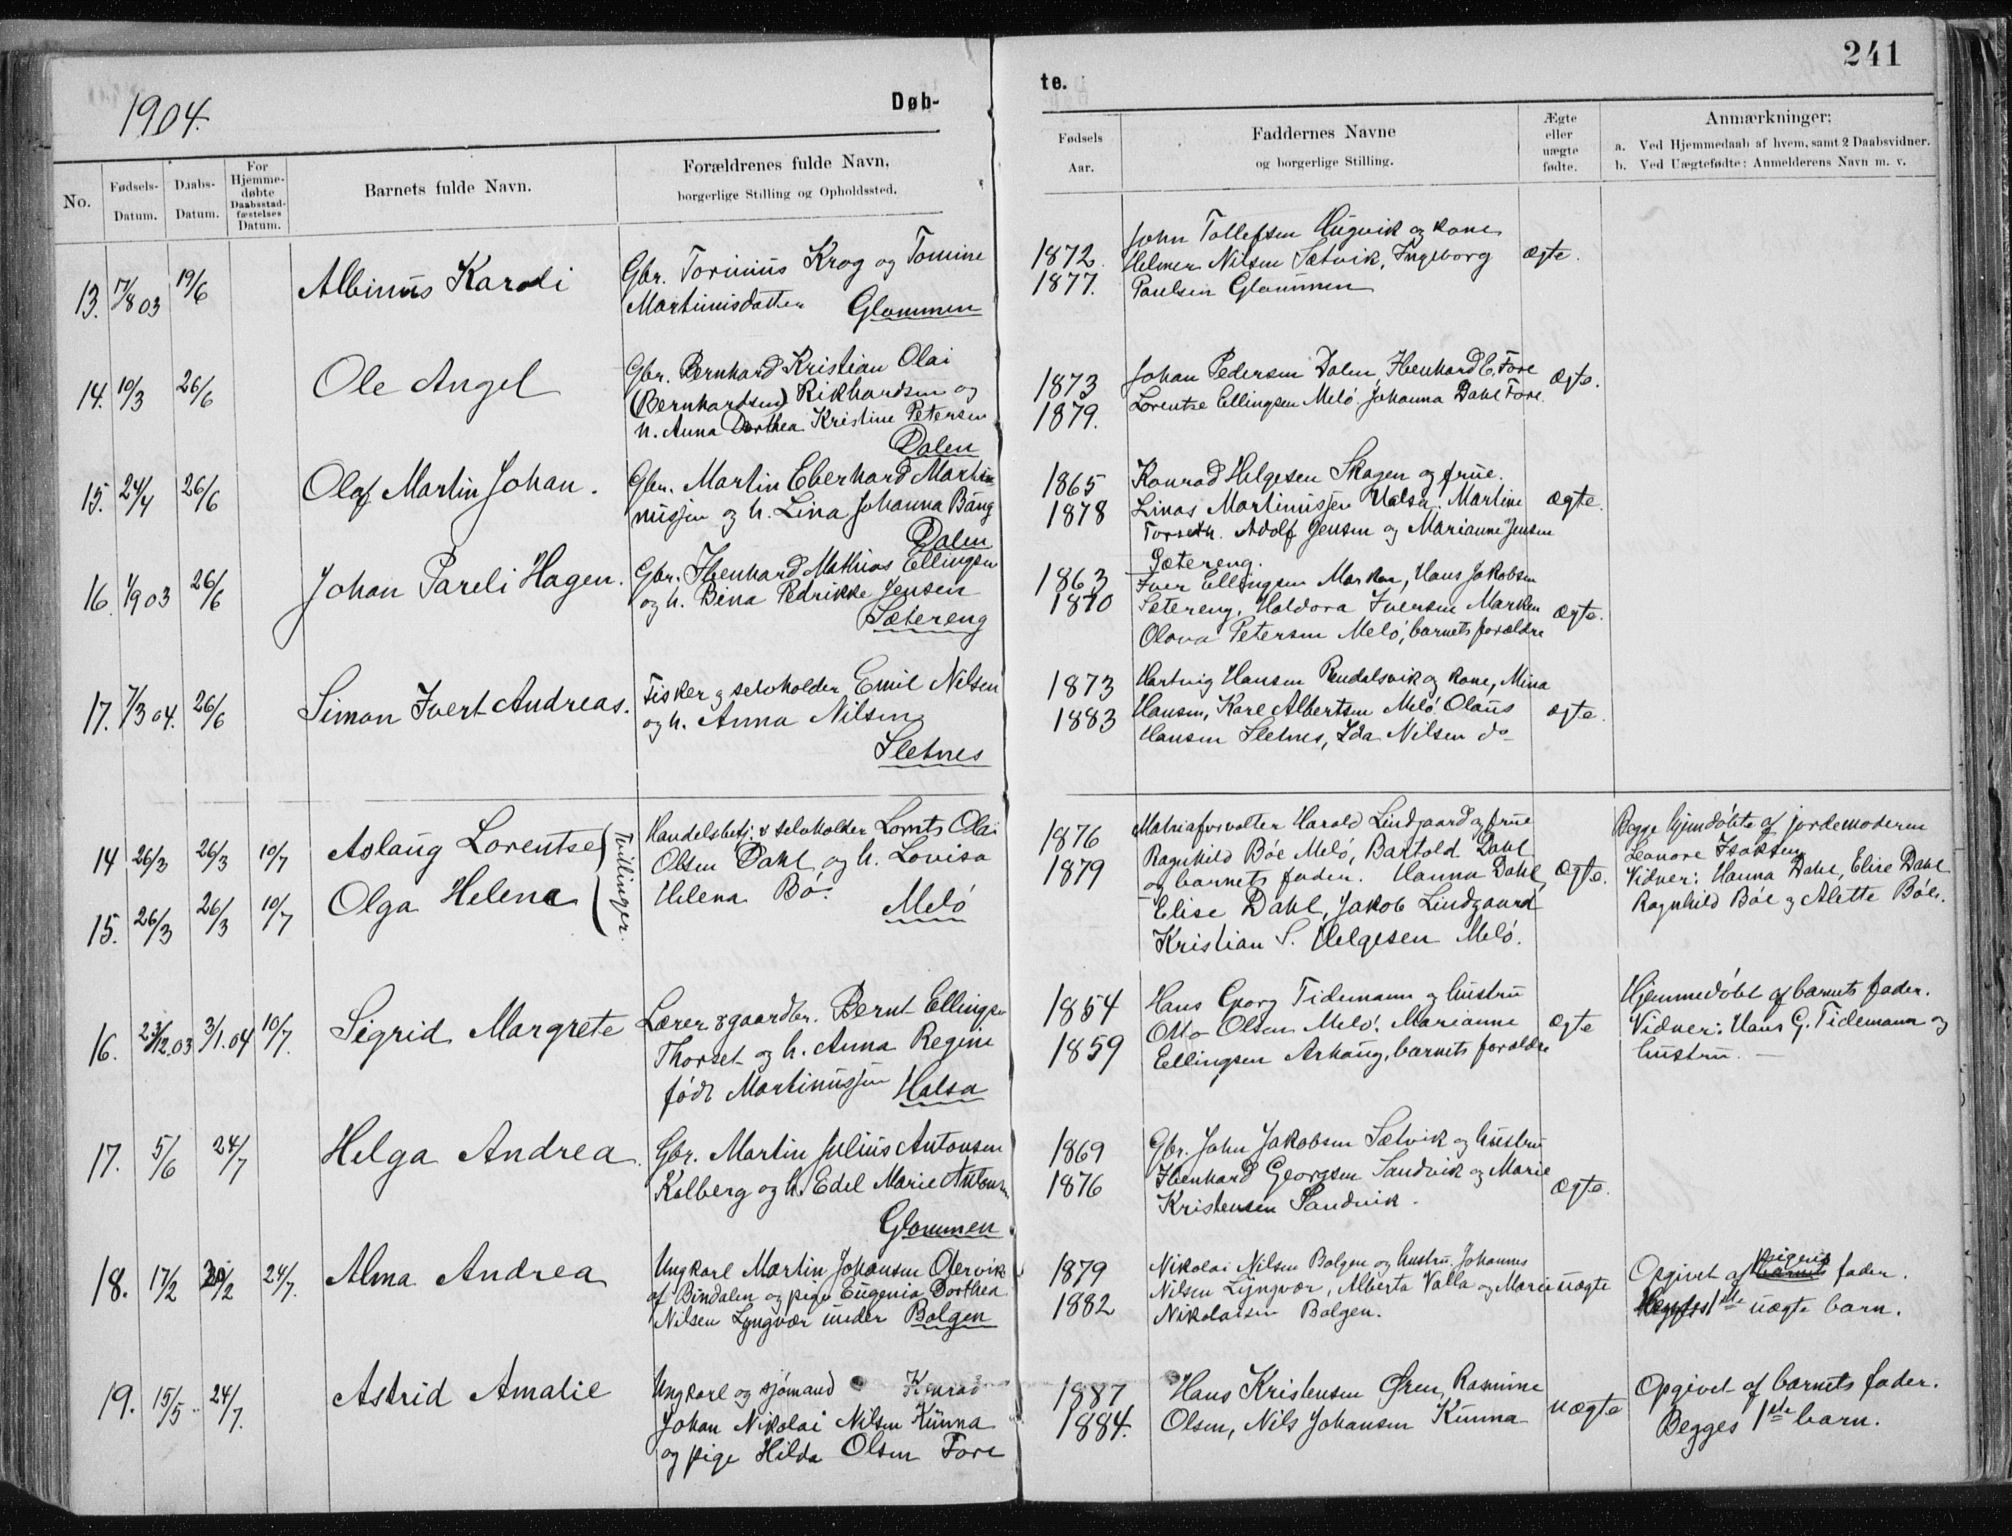 241
1904.
Døb-
te.
No.
Fødsels-
Datum.
Daabs-
Datum.
For
Hjemme-
døbte
Daabsstad-
fæstelses
Datum.
Barnets fulde Navn.
Forældrenes fulde Navn,
borgerlige Stilling og Opholdssted.
Fødsels
Aar.
Faddernes Navne
og borgerlige Stilling.
Ægte
eller
uægte
fødte.
Anmærkninger:
a. Ved Hjemmedaab af hvem, samt 2 Daabsvidner.
b. Ved Uægtefødte: Anmelderens Navn m. v.
13. 17/8 03 19/6 Albinus Karoli
Gbr. Torinius Krog og Tomine
Martinusdatter Glommen
1872.
1877.
John Tollefsen Hugvik og kone
Helmer Nilsen Sætvik, Ingeborg
Paulsen Glommen
ægte.
14. 10/3 26/6 Ole Angel
Gbr. Bernhard Kristian Olai
(Bernhardsen) Rikhardsen og
h. Anna Dorthea Kristine Petersen
Dalen
1873
1879.
Johan Pedersen Dalen, Ibenhard E. Fore
Lorentse Ellingsen Melö. Johanna Dahl Fore.
ægte.
15. 24/4 26/6 Olaf Martin Johan.
Gbr. Martin Eberhard Marti-
nussen og h. Lina Johanna Bang
Dalen
1865
1878
Konrad Helgesen Skagen og frue.
Linas Martinussen Halsa. Martine
Torseth. Adolf Jensen og Marianne Jensen
Sætereng.
ægte.
16. 1/9 03 26/6 Johan Pareli Hagen.
Gbr. Ibenhard Mathias Ellingsen
og h. Bina Pedrikke Jensen
Sætereng
1863
1870
Iver Ellingsen Marken, Hans Jakobsen
Sætereng, Haldora Iversen Marken
Olova Petersen Melö, barnets forældre
ægte.
17. 7/3 04. 26/6 Simon Ivert Andreas.
Fisker & selvholder Emil Nilsen
og h. Anna Nilsen
Sletnes
1873
1883
Hartvig Hansen Rendalsvik og kone, Mina
Hansen, Karl Albertsen Melö. Olaus
Hansen Sletnes, Ida Nilsen do
ægte.
14 26/3 26/3 10/7 Aslaug Lorentse
15. 26/3 26/3 10/7 Olga Helene
Tvillinger.
Handelsbetj. & selvholder Lornts Olai
Olsen Dahl og h. Lovisa
Helena Bö.
Melö
1876
1879
Matriaforvalter Harald Lindgaard og frue
Ragnhild Böe Melö, Bartold Dahl
og barnets fader. Hanna Dahl,
Elise Dahl, Jakob Lindgaard
Kristian S. Helgesen Melö.
ægte.
Begge hjemdöbte af jordemoderen
Leonore Isaksen
Vidner: Hanna Dahl, Elise Dahl
Ragnhild Böe og Alette Böe.
16. 23/12.03 3/1.04 10/7. Sigrid Margrete
Lærer & gaardbr. Bernt Ellingsen
Thorset og h. Anna Regine
född Martinussen Halsa
1854
1859
Hans Georg Tidemann og hustru
Otto Olsen Melö. Marianne
Ellingsen Arhaug, barnets forældre
ægte
Hjemmedöbt af barnets fader.
Vidner: Hans G. Tidemann og
hustru. —
17. 5/6 24/7 Helga Andrea
Gbr. Martin Julius Antonsen
Kalberg og h. Edel Marie Antonsen
Glommen.
1869
1876
Gbr. John Jakobsen Sætvik og hustru
Ibenhard Georgsen Sandvik og Marie
Kristensen Sandvik.
ægte.
18. 17/2 20/2 24/7. Alma Andrea
Ungkarl Martin Johansen Olervik
af Bindalen og pige Eugenia Dorthea
Nilsen Lyngvær under Bolgen
1879
1882
Nikolai Nilsen Bolgen og hustru. Johannes
Nilsen Lyngvær, Alberta Valla og Marie
Nikolaisen Bolgen.
uægte
Opgivet af barnets pigens fader.
Begges 1ste uægte barn.
19. 15/5. 24/7. Astrid Amalie
Ungkarl og sjömand Konrad
Johan Nikolai Nilsen Kunna
og pige Hilda Olsen Fore
1887
1884.
Hans Kristensen Ören, Rasmine
Olsen, Nils Johansen Kunna
uægte
Opgivet af barnets fader.
Begges 1ste barn.